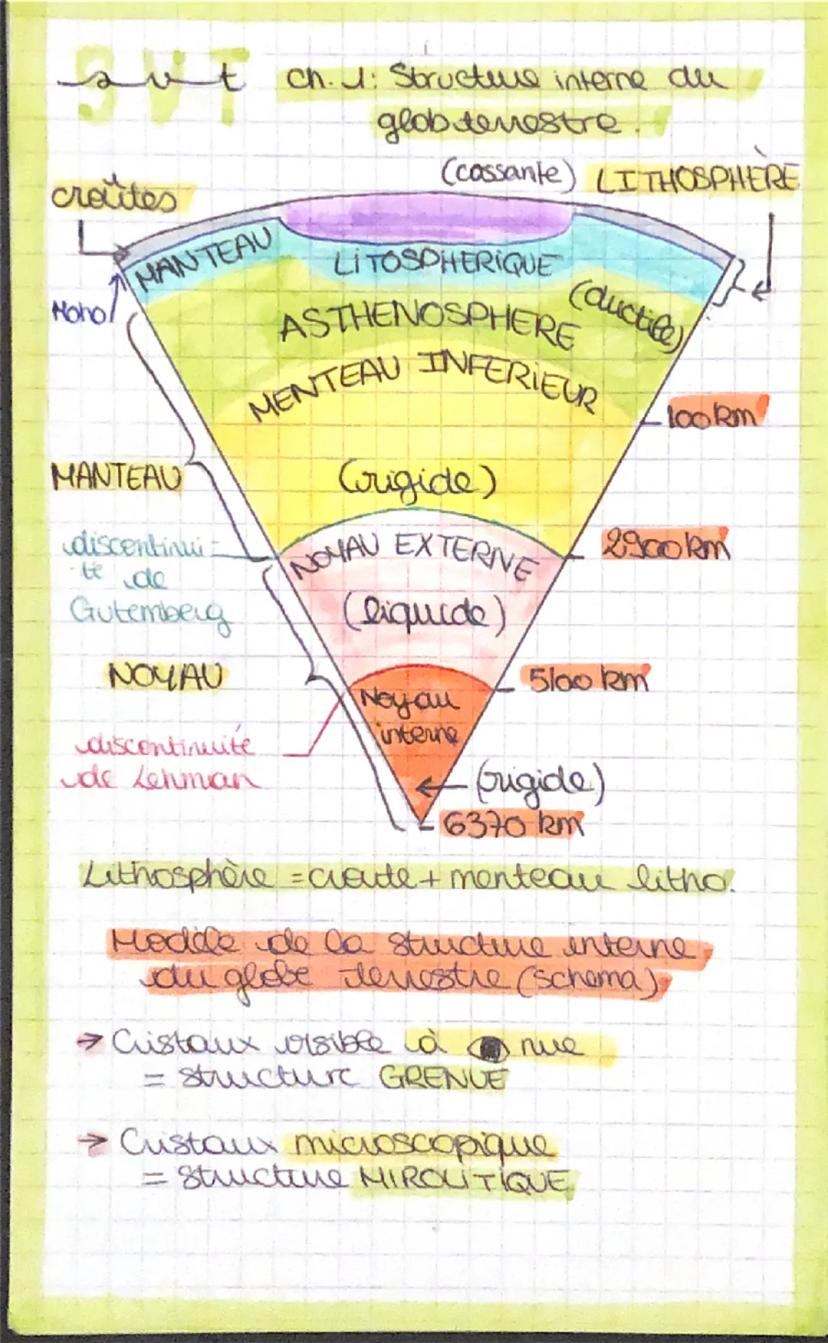 SVT
svt ch.1: Structure interne du
glob terrestre.
(cassante) LITHOSPHÈRE
croûtes
MANTEAU LITOSPHERIQUE
Moho
(ductile)
ASTHENOSPHERE
MENTEAU INFERIEUR
100 km
MANTEAU
(rigide)
discontinui-
té de
Gutemberg
NOYAU EXTERNE
2900 km
(liquide)
NOYAU
5100 km
Noyau
interne
discontinuité
de Lehman
(rigide)
6370 km
Lithosphère = croute + menteau litho.
Modèle de la structure interne
du globe terrestre (schema)
→ Cristaux visible à nue
= structure GRENUE
→ Cristaux microscopique
= structure MIROLITIQUE